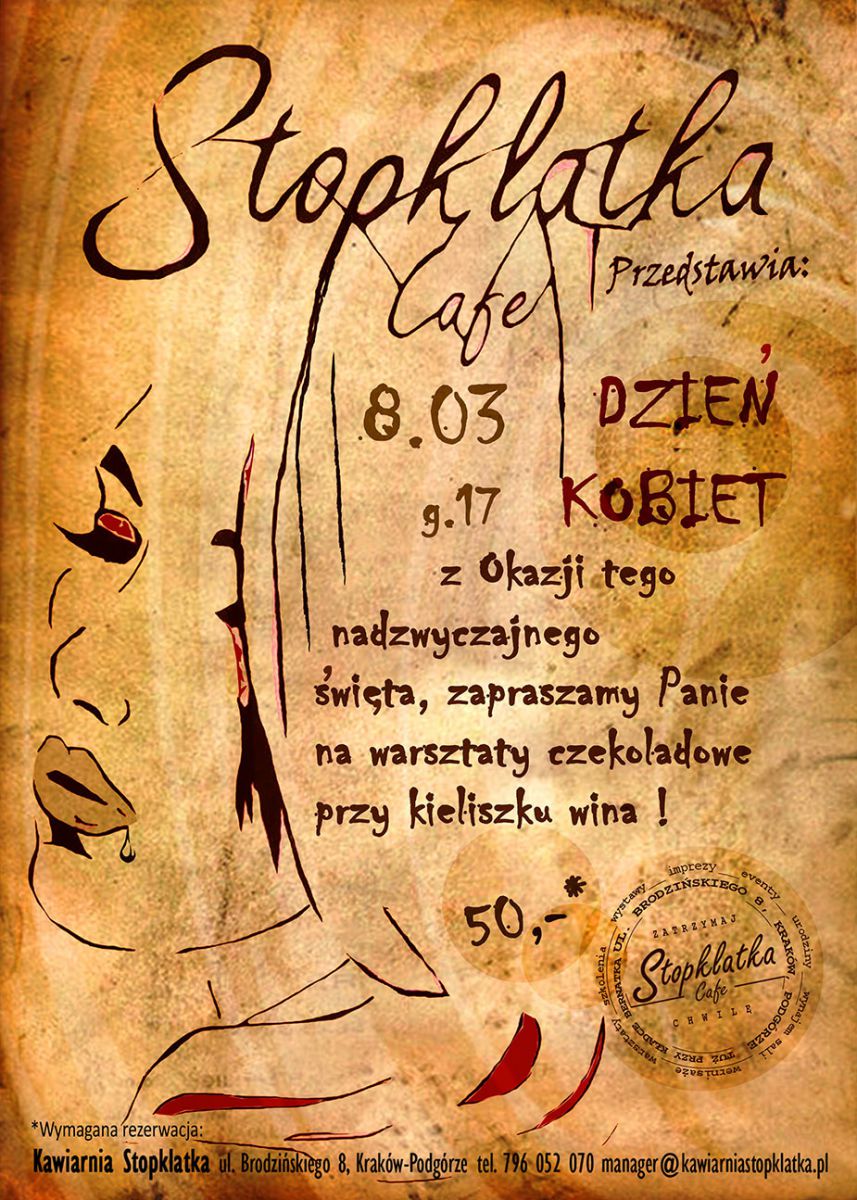 Stopklatka
Cafe
Przedstawia:
8.03
DZIEŃ
g.17
KOBIET
z Okazji tego
nadzwyczajnego
święta, zapraszamy Panie
na warsztaty czekoladowe
przy kieliszku wina !
50,-*
szkolenia wystawy imprezy eventy urodziny wynajem sali wernisaże warsztaty
UL. BRODZIŃSKIEGO 8, KRAKÓW, PODGÓRZE, TUŻ PRZY KŁADCE BERNATKA
ZATRZYMAJ
Stopklatka
Cafe
CHWILĘ
*Wymagana rezerwacja:
Kawiarnia Stopklatka ul. Brodzińskiego 8, Kraków-Podgórze tel. 796 052 070 manager@kawiarniastopklatka.pl